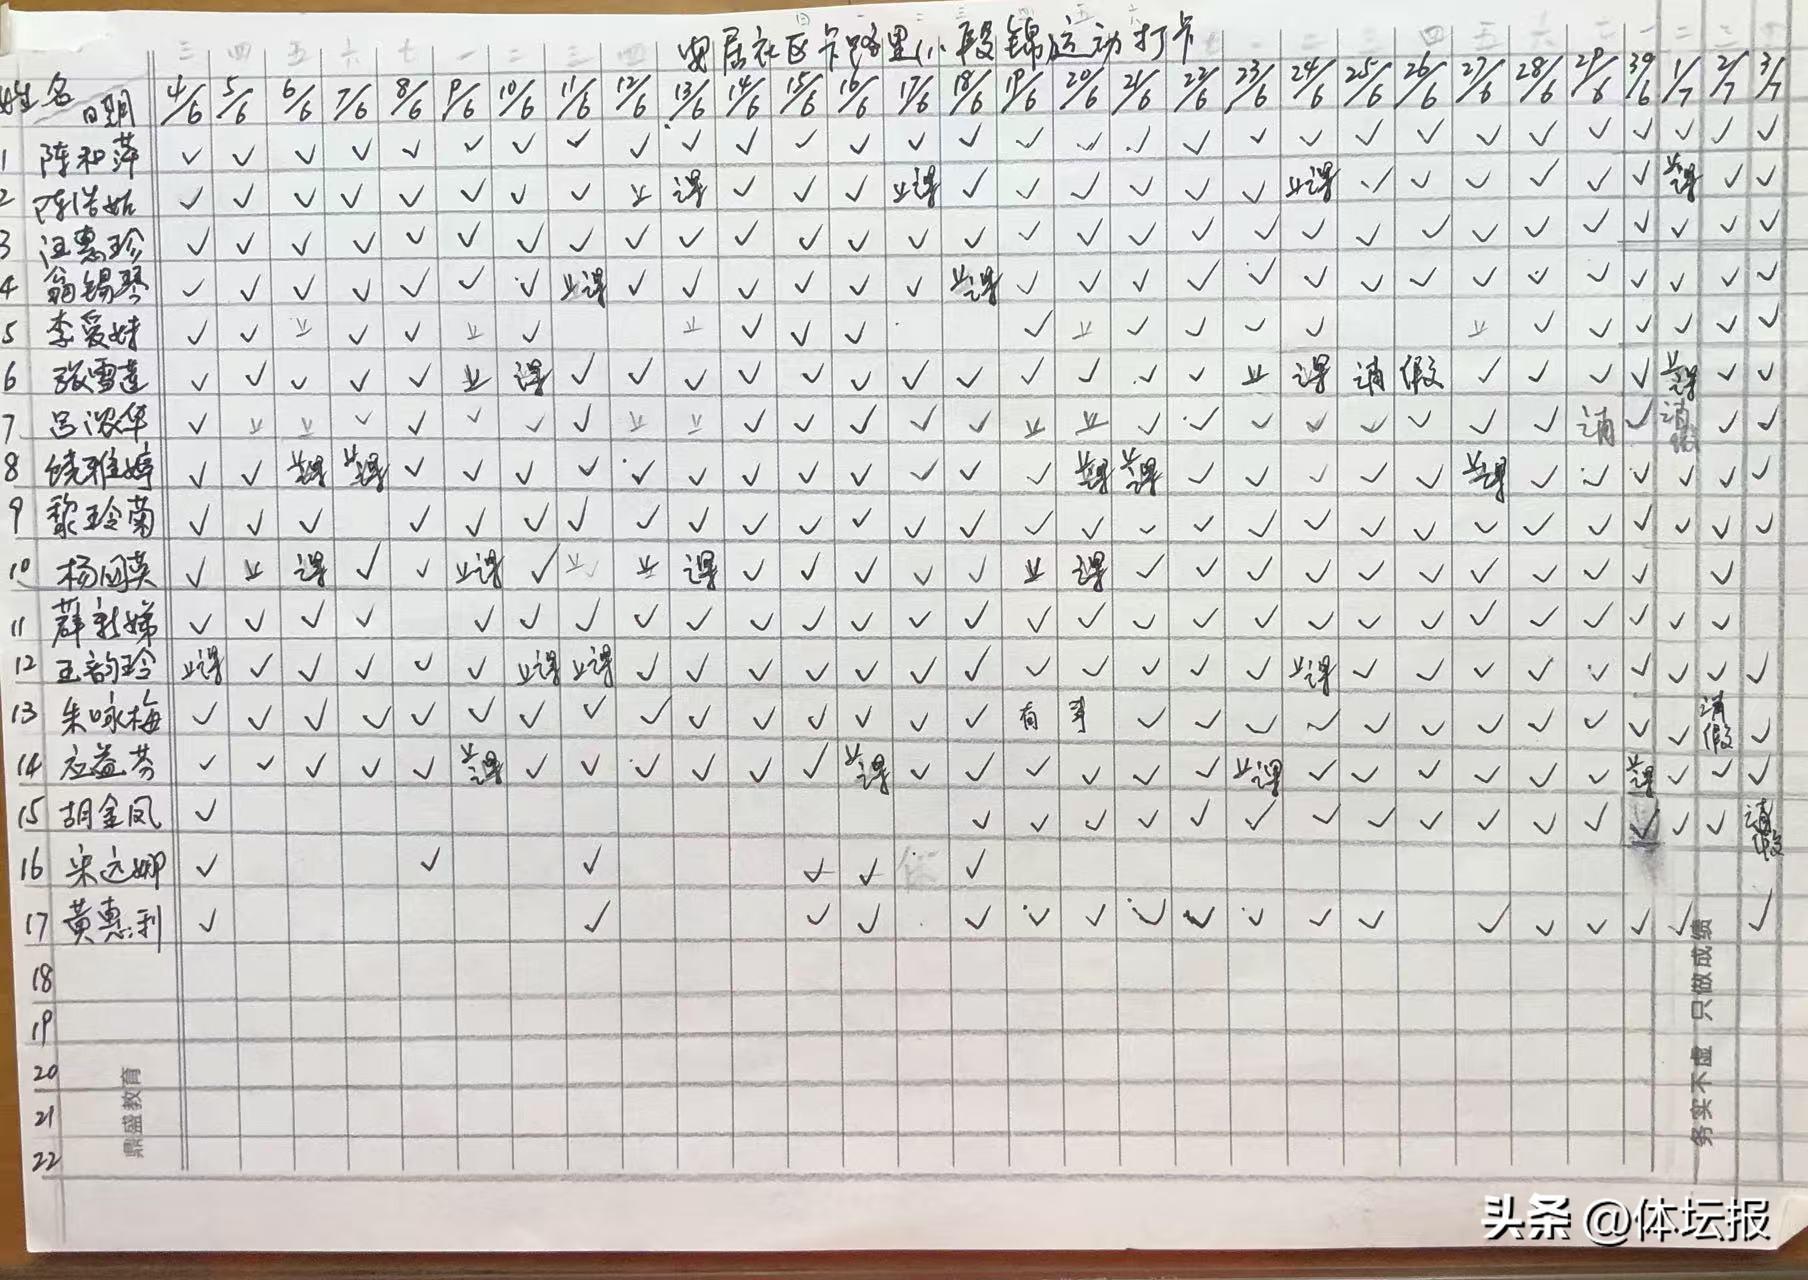 三 四 五 六 七 一 二 三 四 日 一 二 三 四 五 六 七 一 二 三 四 五 六 七 一 二 三
安居社区卡路里八段锦运动打卡
姓名 日期 4/6 5/6 6/6 7/6 8/6 9/6 10/6 11/6 12/6 13/6 14/6 15/6 16/6 17/6 18/6 19/6 20/6 21/6 22/6 23/6 24/6 25/6 26/6 27/6 28/6 29/6 30/6 1/7 2/7 3/7
1 陈和萍 ✓ ✓ ✓ ✓ ✓ ✓ ✓ ✓ ✓ ✓ ✓ ✓ ✓ ✓ ✓ ✓ ✓ ✓ ✓ ✓ ✓ ✓ ✓ ✓ ✓ ✓ ✓ ✓ ✓ ✓
2 陈浩姑 ✓ ✓ ✓ ✓ ✓ ✓ ✓ ✓ 上 课 ✓ ✓ ✓ 上课 ✓ ✓ ✓ ✓ ✓ ✓ 上课 ✓ ✓ ✓ ✓ ✓ ✓ 上课 ✓ ✓
3 汪惠珍 ✓ ✓ ✓ ✓ ✓ ✓ ✓ ✓ ✓ ✓ ✓ ✓ ✓ ✓ ✓ ✓ ✓ ✓ ✓ ✓ ✓ ✓ ✓ ✓ ✓ ✓ ✓ ✓ ✓ ✓
4 翁锡琴 ✓ ✓ ✓ ✓ ✓ ✓ ✓ 上课 ✓ ✓ ✓ ✓ ✓ ✓ 上课 ✓ ✓ ✓ ✓ ✓ ✓ ✓ ✓ ✓ ✓ ✓ ✓ ✓ ✓ ✓
5 李爱妹 ✓ ✓ 上 ✓ ✓ 上 ✓ 上 ✓ ✓ ✓ ✓ 上 ✓ ✓ ✓ ✓ 上 ✓ ✓ ✓ ✓ ✓ ✓
6 张雪莲 ✓ ✓ ✓ ✓ ✓ 上 课 ✓ ✓ ✓ ✓ ✓ ✓ ✓ ✓ ✓ ✓ ✓ ✓ 上 课 请 假 ✓ ✓ ✓ ✓ 上课 ✓ ✓
7 吕淑华 ✓ 上 上 ✓ ✓ ✓ ✓ ✓ 上 上 ✓ ✓ ✓ ✓ ✓ 上 上 ✓ ✓ ✓ ✓ ✓ ✓ ✓ ✓ 请 ✓ 请假 ✓ ✓
8 饶雅婷 ✓ ✓ 上课 上课 ✓ ✓ ✓ ✓ ✓ ✓ ✓ ✓ ✓ ✓ ✓ ✓ 上课 上课 ✓ ✓ ✓ ✓ ✓ 上课 ✓ ✓ ✓ ✓ ✓ ✓
9 黎玲菊 ✓ ✓ ✓ ✓ ✓ ✓ ✓ ✓ ✓ ✓ ✓ ✓ ✓ ✓ ✓ ✓ ✓ ✓ ✓ ✓ ✓ ✓ ✓ ✓ ✓ ✓ ✓ ✓ ✓
10 杨国英 ✓ 上 课 ✓ ✓ 上课 ✓ 上 上 课 ✓ ✓ ✓ ✓ ✓ 上 课 ✓ ✓ ✓ ✓ ✓ ✓ ✓ ✓ ✓ ✓ ✓
11 薛新娣 ✓ ✓ ✓ ✓ ✓ ✓ ✓ ✓ ✓ ✓ ✓ ✓ ✓ ✓ ✓ ✓ ✓ ✓ ✓ ✓ ✓ ✓ ✓ ✓ ✓ ✓ ✓ ✓
12 王韵玲 上课 ✓ ✓ ✓ ✓ ✓ 上课 上课 ✓ ✓ ✓ ✓ ✓ ✓ ✓ ✓ ✓ ✓ ✓ ✓ 上课 ✓ ✓ ✓ ✓ ✓ ✓ ✓ ✓ ✓
13 朱咏梅 ✓ ✓ ✓ ✓ ✓ ✓ ✓ ✓ ✓ ✓ ✓ ✓ ✓ ✓ ✓ 有 事 ✓ ✓ ✓ ✓ ✓ ✓ ✓ ✓ ✓ ✓ ✓ 请假 ✓
14 应益芬 ✓ ✓ ✓ ✓ ✓ 上课 ✓ ✓ ✓ ✓ ✓ ✓ 上课 ✓ ✓ ✓ ✓ ✓ ✓ 上课 ✓ ✓ ✓ ✓ ✓ ✓ 上课 ✓ ✓ ✓
15 胡金凤 ✓ ✓ ✓ ✓ ✓ ✓ ✓ ✓ ✓ ✓ ✓ ✓ ✓ ✓ ✓ ✓ 请假
16 宋远娜 ✓ ✓ ✓ ✓ ✓ ✓
17 黄惠利 ✓ ✓ ✓ ✓ ✓ ✓ ✓ ✓ ✓ ✓ ✓ ✓ ✓ ✓ ✓ ✓ ✓ ✓
18
19
20
21
22
鼎盛教育
务实不虚 只做成绩
头条 @体坛报